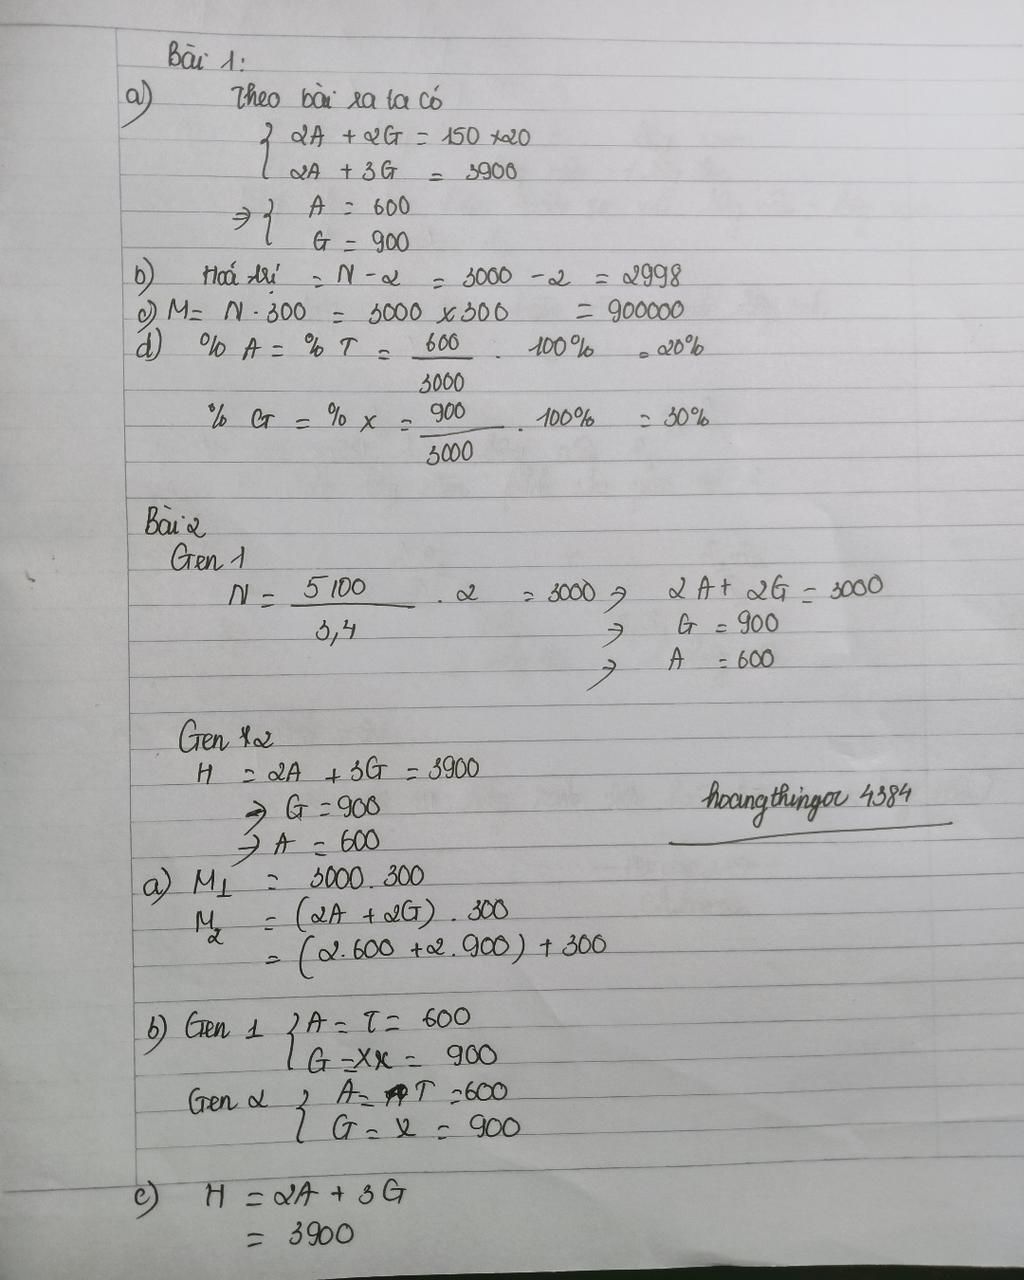 Bài 1:
a) Theo bài ra ta có
2A + 2G = 150 x 20
2A + 3G = 3900
=> A = 600
G = 900
b) Hoá trị = N - 2 = 3000 - 2 = 2998
c) M = N . 300 = 3000 x 300 = 900000
d) % A = % T = 600/3000 . 100% = 20%
% G = % X = 900/3000 . 100% = 30%
Bài 2
Gen 1
N = 5100/3,4 . 2 = 3000 => 2A + 2G = 3000
=> G = 900
=> A = 600
Gen 2
H = 2A + 3G = 3900
=> G = 900
=> A = 600
hoangthingoc 4384
a) M1 = 3000.300
M2 = (2A + 2G) . 300
= (2.600 + 2.900) + 300
b) Gen 1 A = T = 600
G = X = 900
Gen 2 A = T = 600
G = X = 900
c) H = 2A + 3G
= 3900